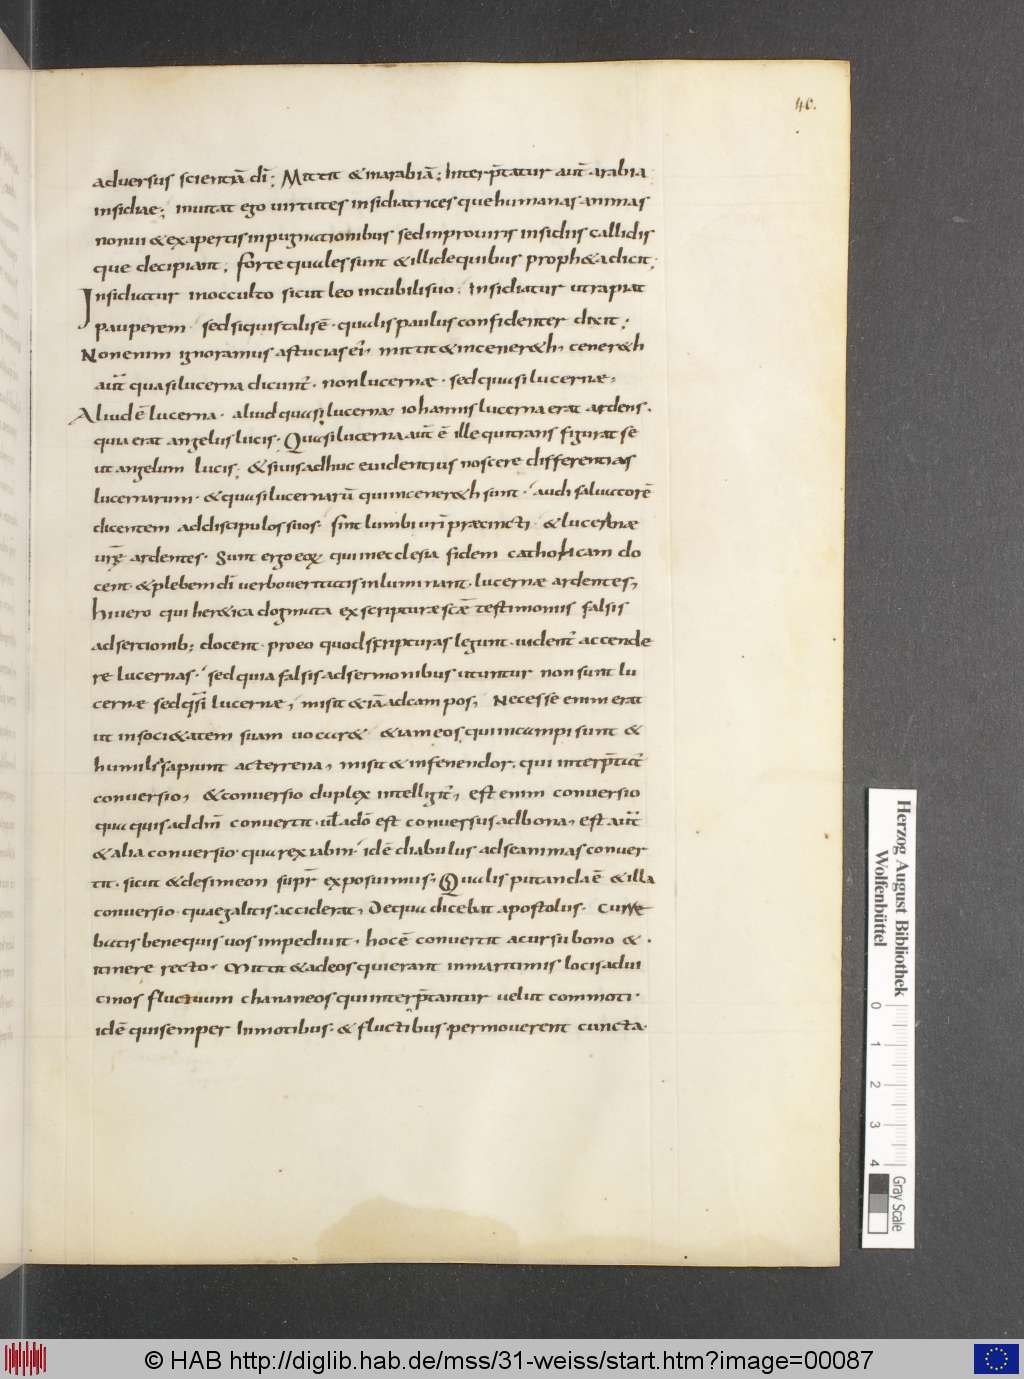 40.
adversus scientiā dī; Mittit & inarabiā; Interp̄tatur aut̄ arabia
insidiae; inuitat ego uirtutes insidiatrices que humanas animas
non ui & ex apertis inpugnationibus sed inprouiris insidiis callidis
que decipiant; forte quales sunt & illi de quibus proph&a dicit;
Insidiatur in occulto sicut leo in cubili suo. Insidiatur ut rapiat
pauperem. sed siquis talis ē. qualis paulus confidenter dixit;
Non enim ignoramus astucias ei; mittit & in cener&h, cener&h
aut̄ quasi lucerna dicunt̄. non lucernæ. sed quasi lucernæ,
Aliud ē lucerna. aliud quasi lucerna iohannis lucerna erat ardens.
quia erat angelus lucis. Quasi lucerna aut̄ ē ille qui transfigurat se
ut angelum lucis; & si uis adhuc euidentius noscere differentias
lucernarum. & quasi lucernarū qui in cener&h sunt. audi saluatorē
dicentem ad discipulos suos. sint lumbi urī præcincti & lucernae
uræ ardentes. Sunt ergo eoꝝ qui in ecclesia fidem catholicam do
cent. & plebem dī uerbo ueritatis inluminant. lucernæ ardentes,
hi uero qui her&ica dogmata ex scripturæ scæ testimoniis falsis
adsertionib; docent. pro eo quod scripturas legunt. uident̄ accende
re lucernas. sed quia falsis adsermonibus utuntur non sunt lu
cernæ sed qsi lucernæ, misit & iā ad campos, Necesse enim erat
ut in soci&atem suam uocar& & iam eos qui in campi sunt &
humilis sapiunt ac terrena, misit & in fenendor. qui interp̄tat̄
conuersio, & conuersio duplex intelligit̄, est enim conuersio
qua quis ad dn̄m conuertit. ut ad dō est conuersus ad bona, est aut̄
& alia conuersio. qua rex iabin. id ē diabulus ad se animas conuer
tit. sicut & de simeon supr̄ exposuimus. Qualis putanda ē & illa
conuersio. quae galatis acciderat, De qua dicebat apostolus. Curre
batis bene quis uos impediuit. hoc ē conuertit a cursu bono & .
itinere recto. Mittit & ad eos qui erant in maritimis locis ad ui
cinos fluctuum chananeos qui interp̄tantur uelut commoti.
id ē qui semper In motibus. & fluctibus permouerent cuncta.
Herzog August Bibliothek
Wolfenbüttel
0 1 2 3 4
Gray Scale
© HAB http://diglib.hab.de/mss/31-weiss/start.htm?image=00087